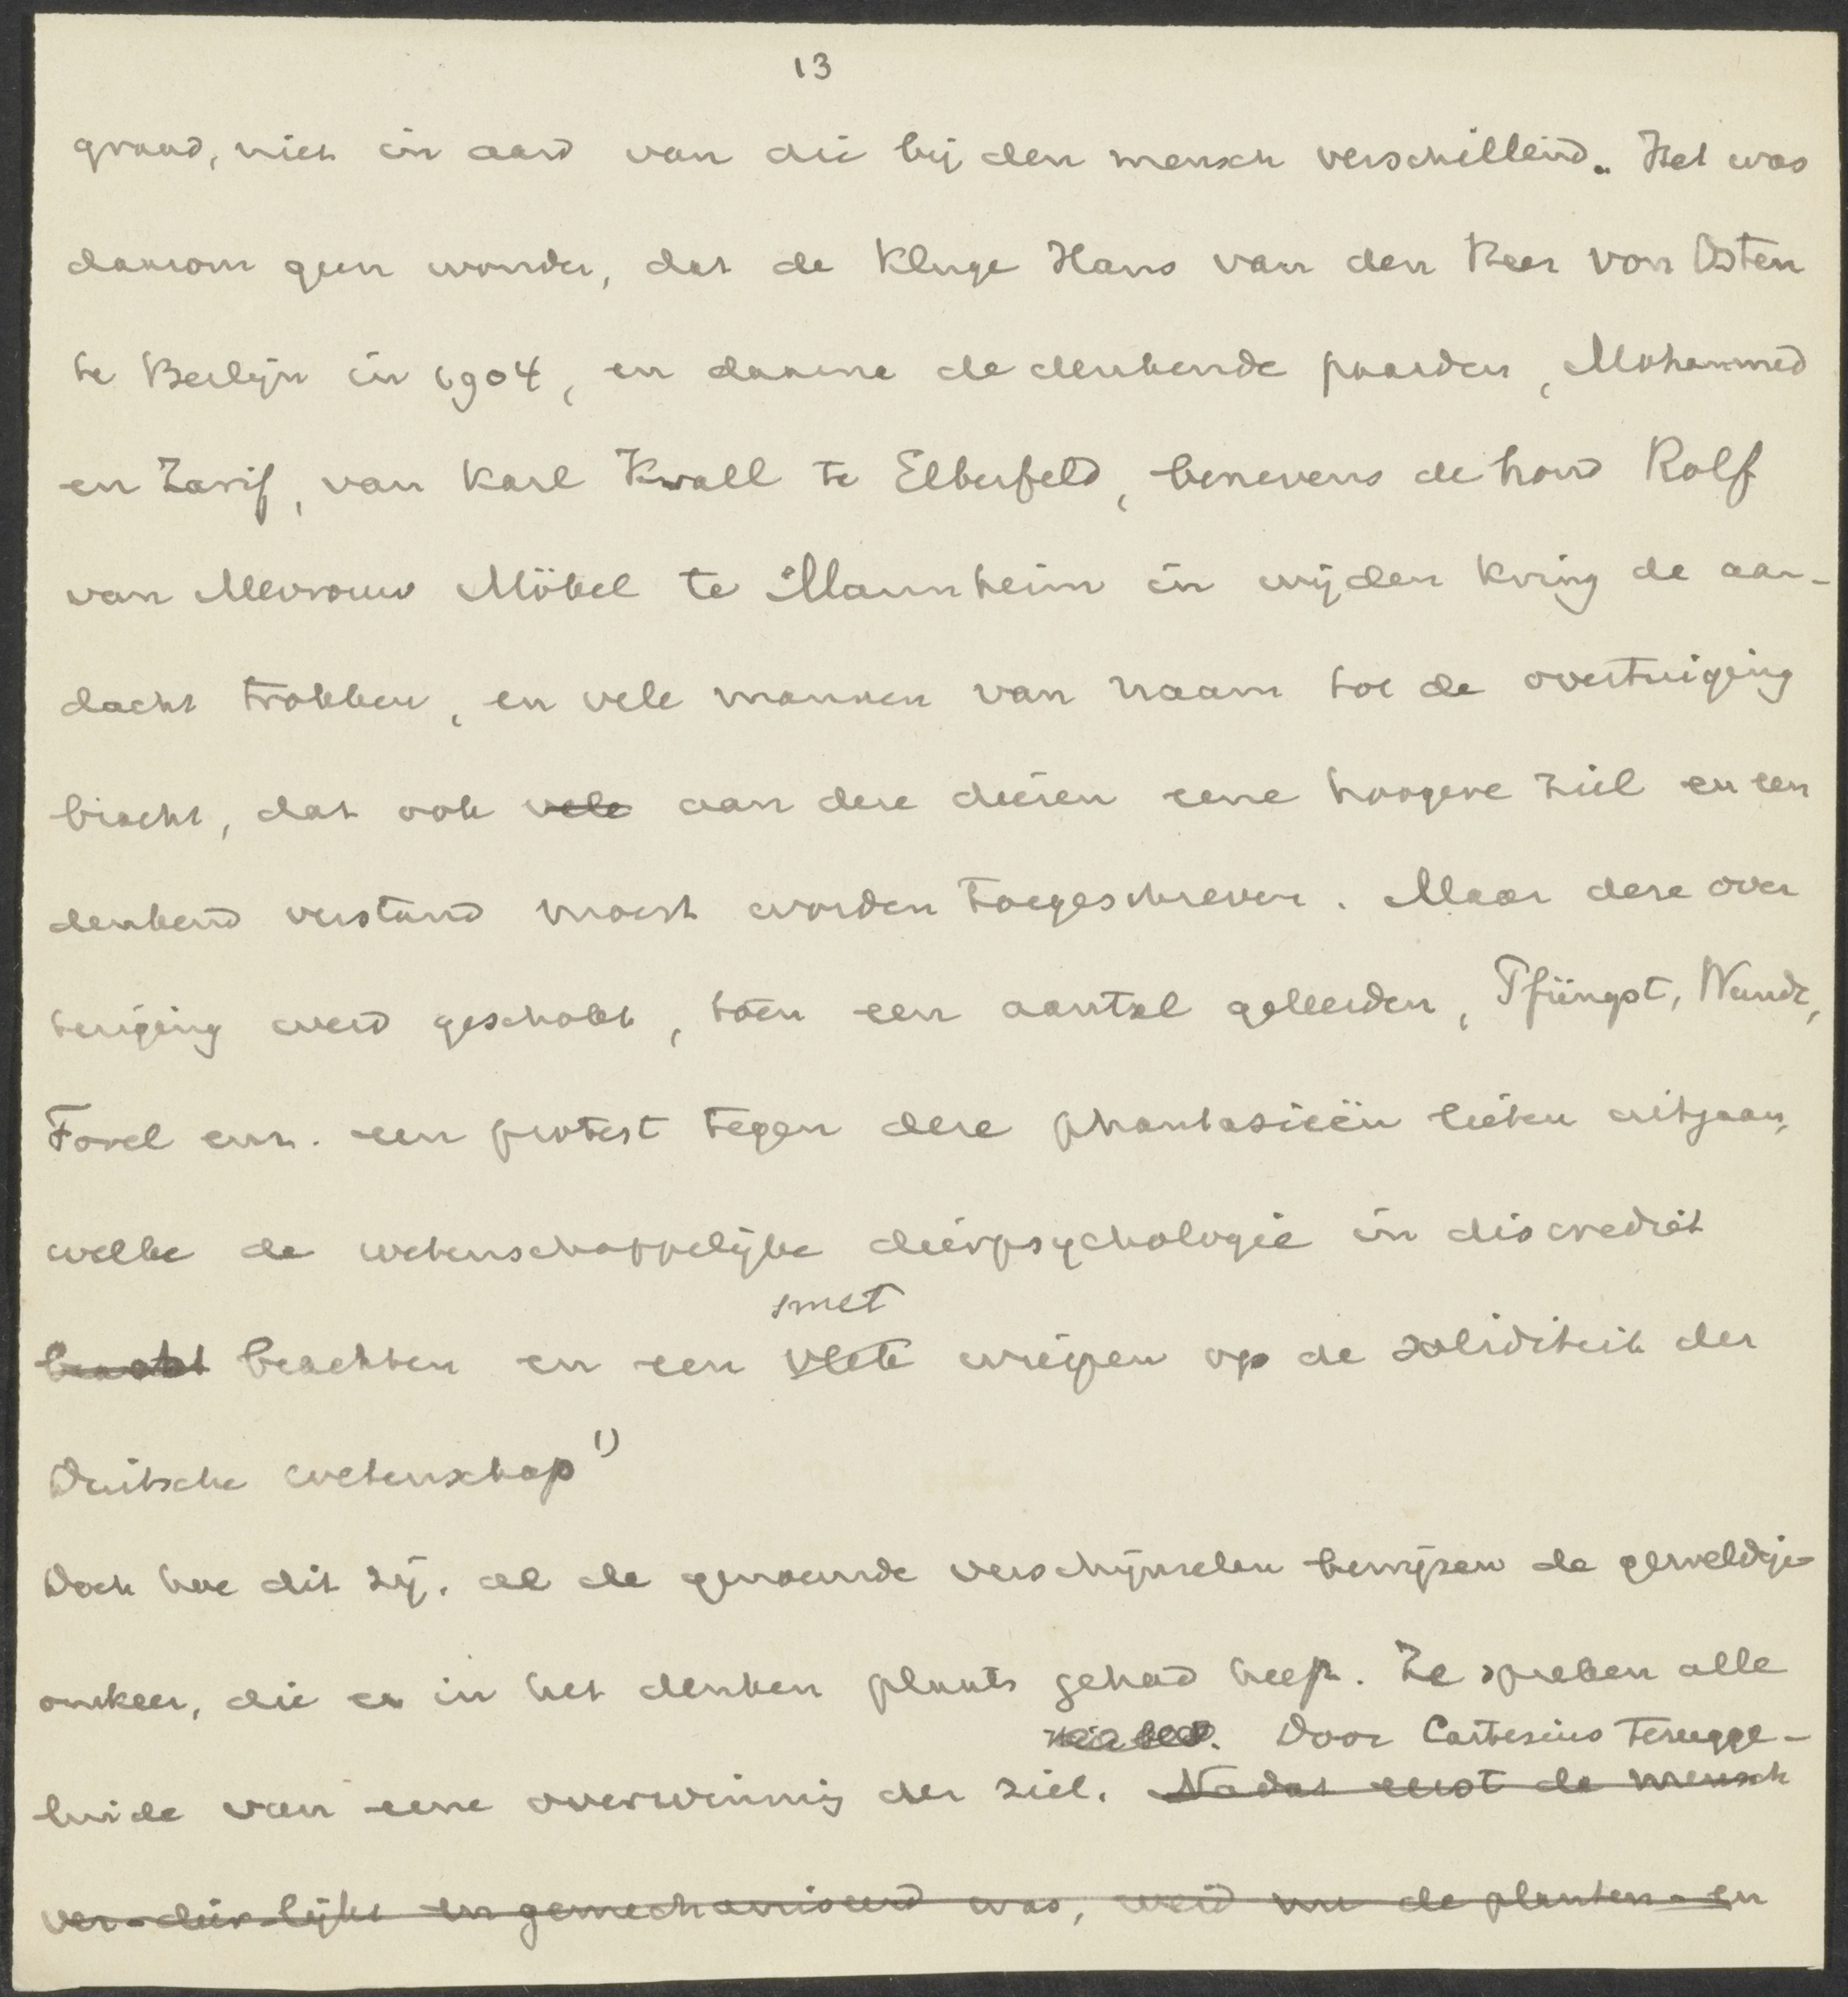 13
graad, niet in aard van die bij den mensch verschillend. Het was
daarom geen wonder, dat de Kluge Hans van den Heer von Osten
te Berlijn in 1904, en daarna de denkende paarden, Mohammed
en Zarif, van Karl Krall te Elberfeld, benevens de hond Rolf
van Mevrouw Möbel te Mannheim in wijden kring de aan-
dacht trokken, en vele mannen van naam tot de overtuiging
bracht, dat ook vele aan deze dieren eene hoogere ziel en een
denkend verstand moest worden toegeschreven. Maar deze over
tuiging werd geschokt, toen een aantal geleerden, Pfüngst, Wundt,
Forel enz. een protest tegen deze phantasieën lieten uitgaan,
welke de wetenschappelijke dierpsychologie in discrediet
smet
bracht brachten en een vlek wierpen op de soliditeit der
Duitsche wetenschap 1)
Doch hoe dit zij, al de genoemde verschijnselen bewijzen de geweldige
omkeer, die er in het denken plaats gehad heeft. Ze spreken alle
Door Cartesius terugge-
luide van eene overwinning der ziel. Nadat eerst de mensch
ver-dier-lijkt en gemechaniseerd was, werd nu de planten- en